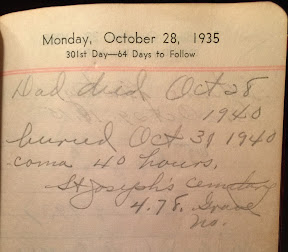 Monday, October 28, 1935
301st Day—64 Days to Follow
Dad died Oct 28
1940
buried Oct 31 1940
coma 40 hours,
St Joseph's Cemetary
4.78. Grave
No.